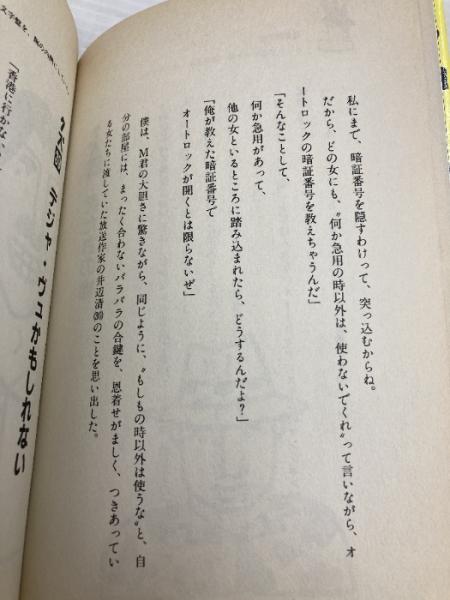 私にまで、暗証番号を隠すわけって、突っ込むからね。
だから、どの女にも、〝何か急用の時以外は、使わないでくれ〟って言いながら、オ
ートロックの暗証番号を教えちゃうんだ」
「そんなことして、
何か急用があって、
他の女といるところに踏み込まれたら、どうするんだよ？」
「俺が教えた暗証番号で
オートロックが開くとは限らないぜ」
僕は、M君の大胆さに驚きながら、同じように、〝もしもの時以外は使うな〟と、自
分の部屋には、まったく合わないバラバラの合鍵を、恩着せがましく、つきあってい
る女たちに渡していた放送作家の井辺清(30)のことを思い出した。
デジャ・ヴュかもしれない
「香港に行かない